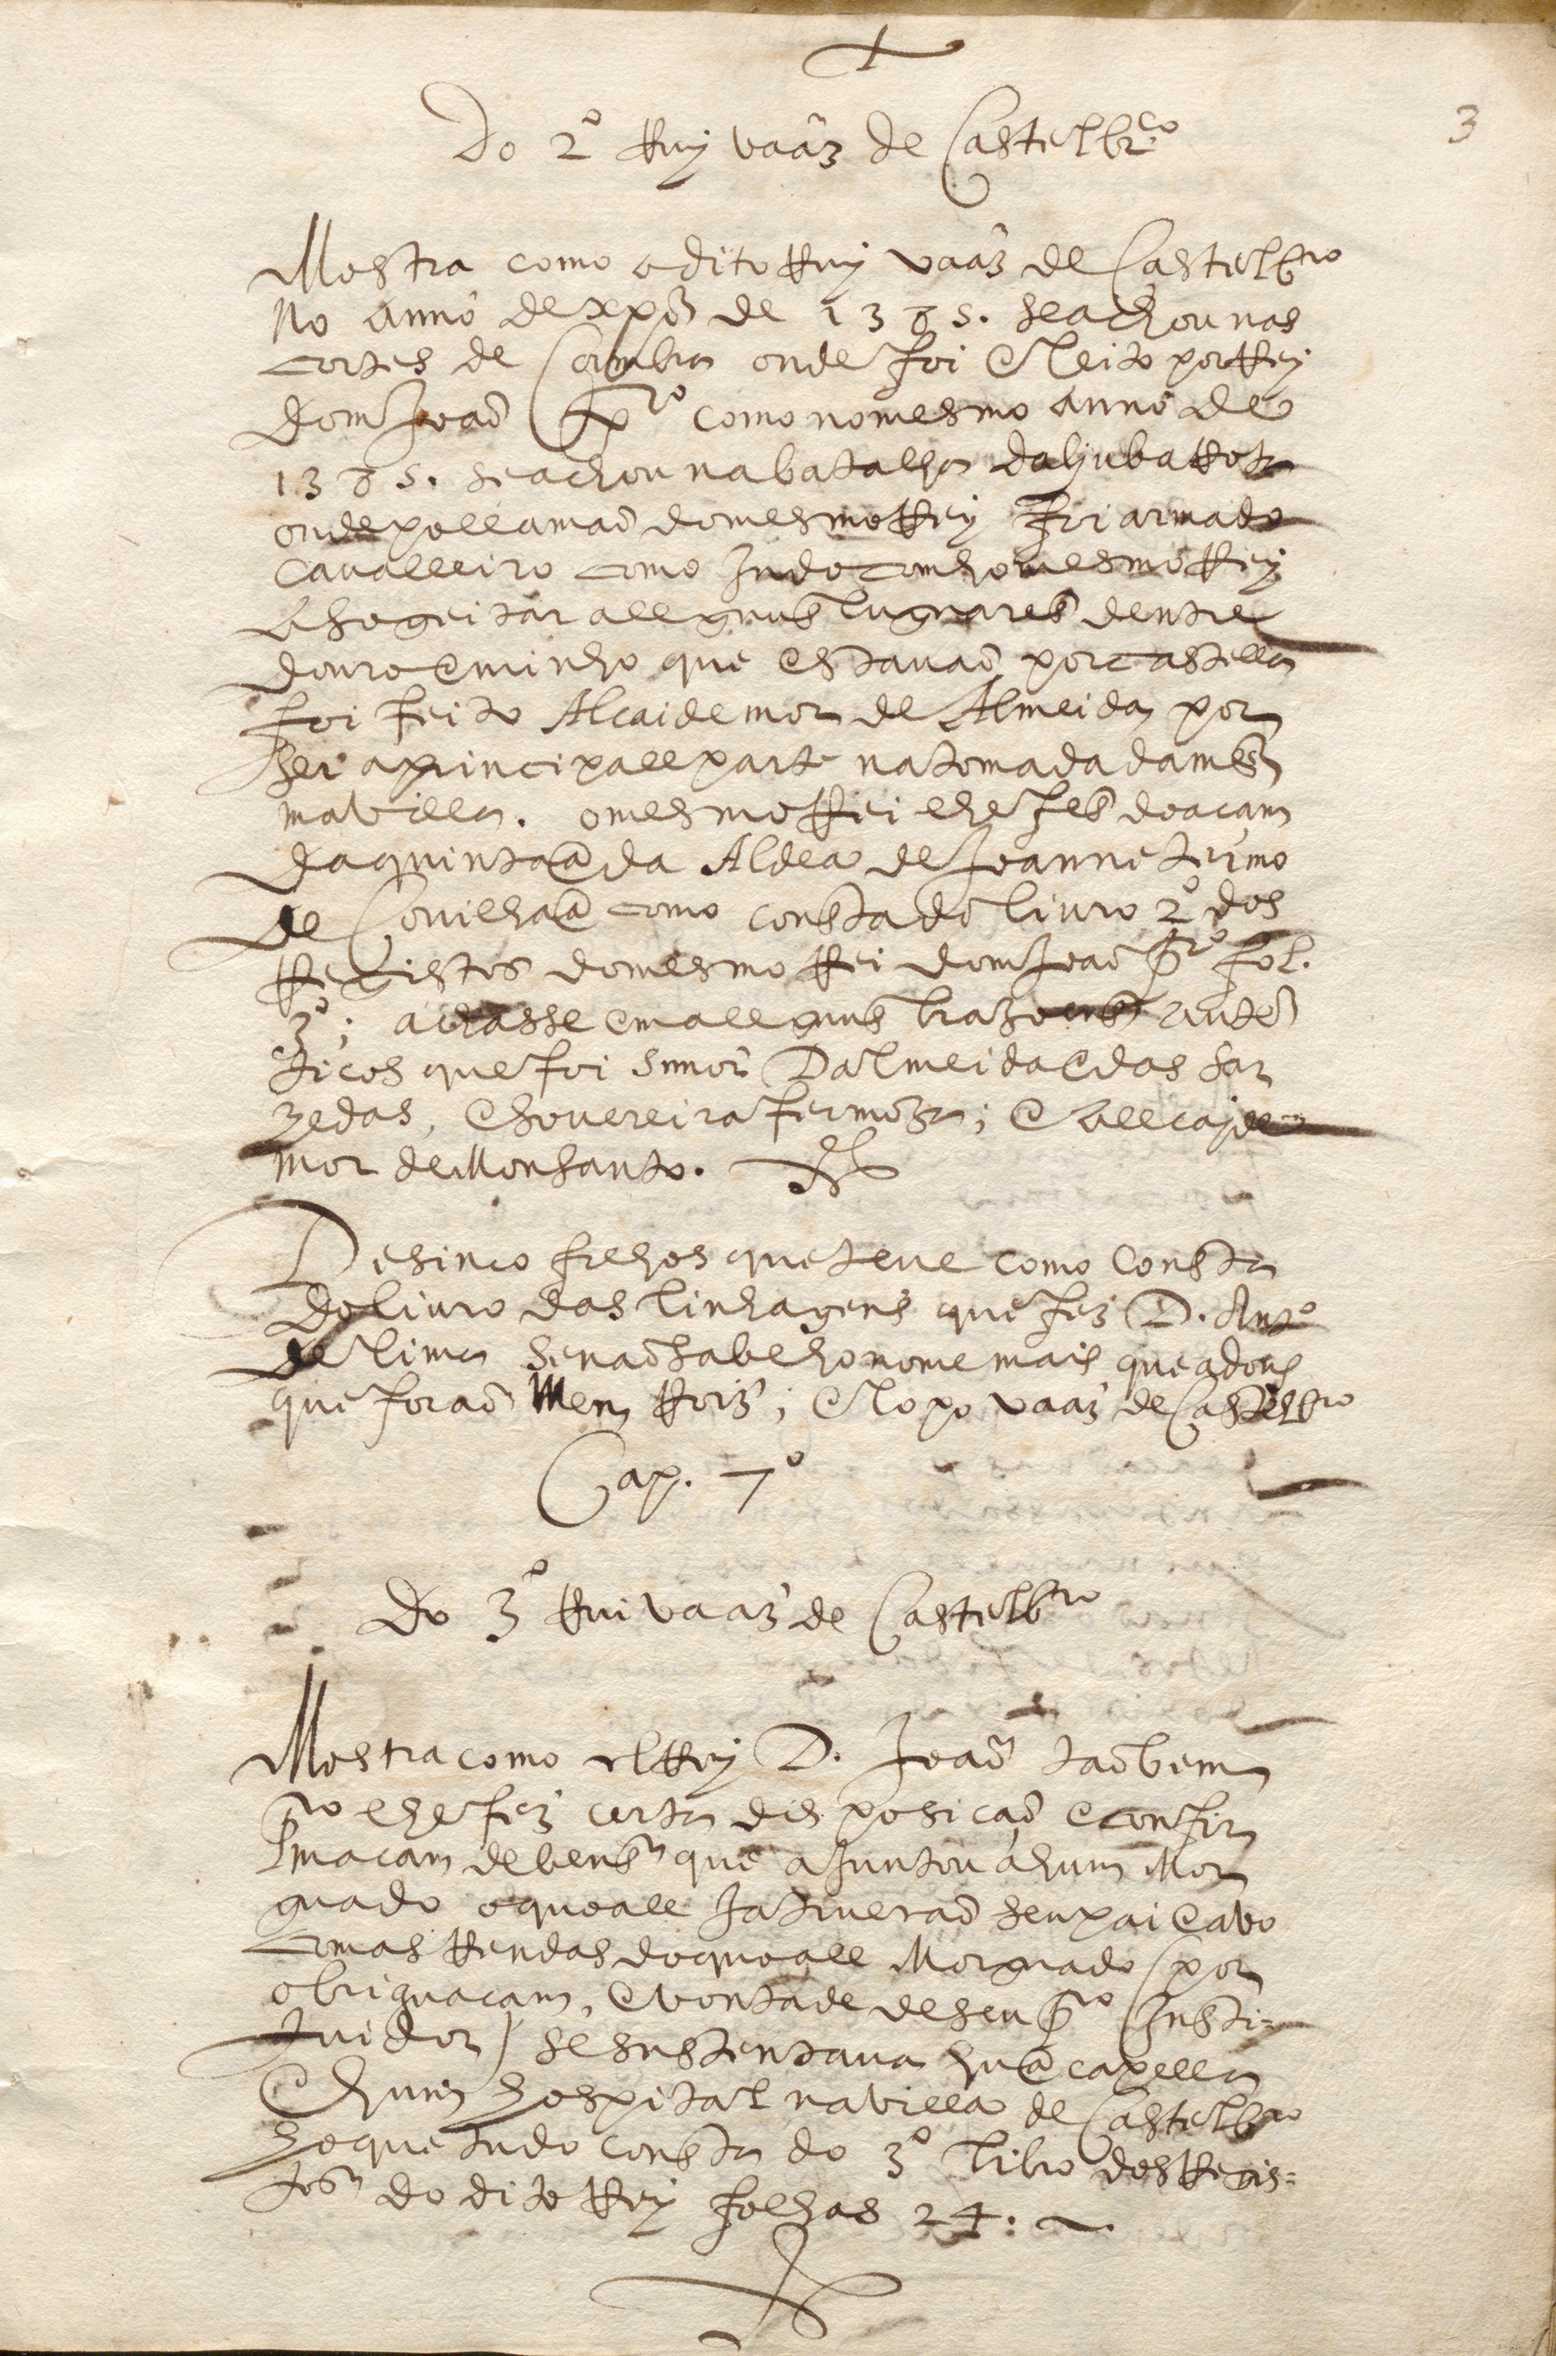 3
Do 2º Ruy vaãz de Castelbrco
Mostra como o dito Ruy vaãz de Castelbro
No anno de xpõ de 1385. se achou nas
cortes de Coimbra onde foi Eleito por Rey
Dom Joaõ Pro como no mesmo anno de
1385. se achou na batalha daljubarrota
onde polla maõ do mesmo Rey foi armado
Cavalleiro como Indo com ho mesmo Rey
A sogeitar allguns lugares dentre
douro e minho que Estavaõ por castella
foi feito Alcaide mor de Almeida por
ser a principall parte na tomada da mes
ma villa. o mesmo Rei lhe fes doaçam
da quintaã da Aldea de Joanne termo
de Covilhaã como consta do livro 2º dos
Registos do mesmo Rei dom Joaõ Pro fol.
3º; achasse em allguns trasos Autẽ
ticos que foi snnor Dalmeida e das Sar
zedas, E sovereira fermosa; E Allcajde
mor de Monsanto.
De sinco filhos que teve como consta
do livro das linhagens que fez D. Antº
de lima se naõ sabe ho nome mais que a dous
que foraõ Mem Roiz; E lopo vaãz de Castelbro
Cap. 7º
Do 3º Rui vaaz de Castelbro
Mostra como elRey D. Joaõ taõbem
Pro lhe fez certa disposicaõ e confir
macam de bens que ajuntou a hum Mor
guado o quoall ja tiveraõ seu pai e avo
com as Rendas do quoall Morguado (por
obriguacam, E vontade de seu Pro Insti-
tuidor) se sustentava huã capella
E hum hospital na villa de Castelbro
ho que tudo consta do 3º libro dos Regis=
tos do dito Rey folhas 24.